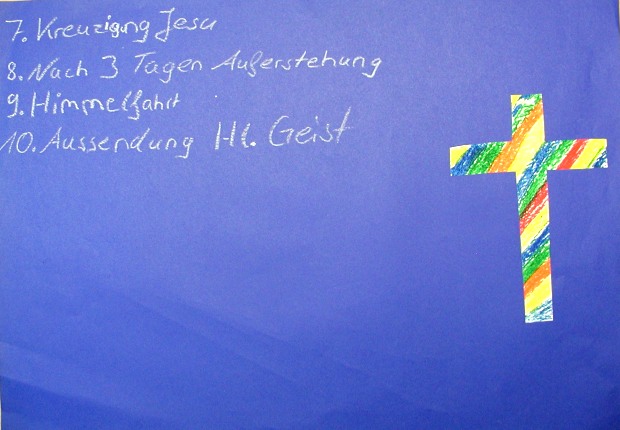 7. Kreuzigung Jesu
8. Nach 3 Tagen Auferstehung
9. Himmelfahrt
10. Aussendung Hl. Geist